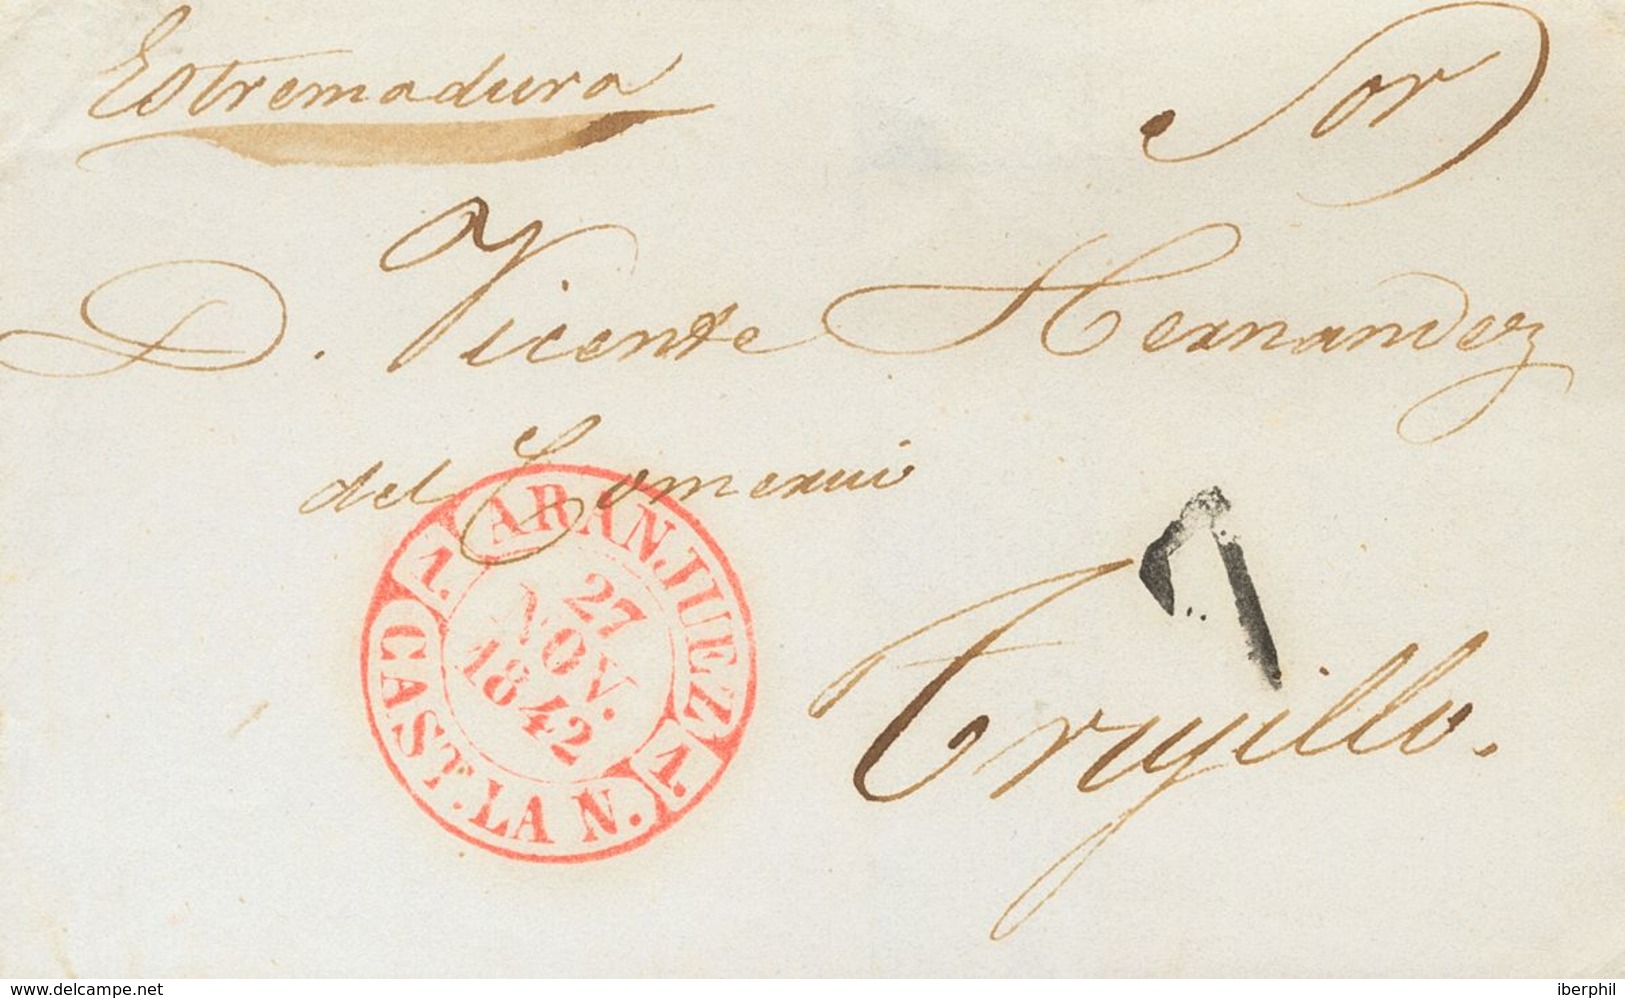 Estremadura
Sor
D. Vicente Hernandez
del Comercio
Trujillo.
1 ARANJUEZ 1
CAST. LA N.
27
NOV.
1842
www.delcampe.net
iberphil